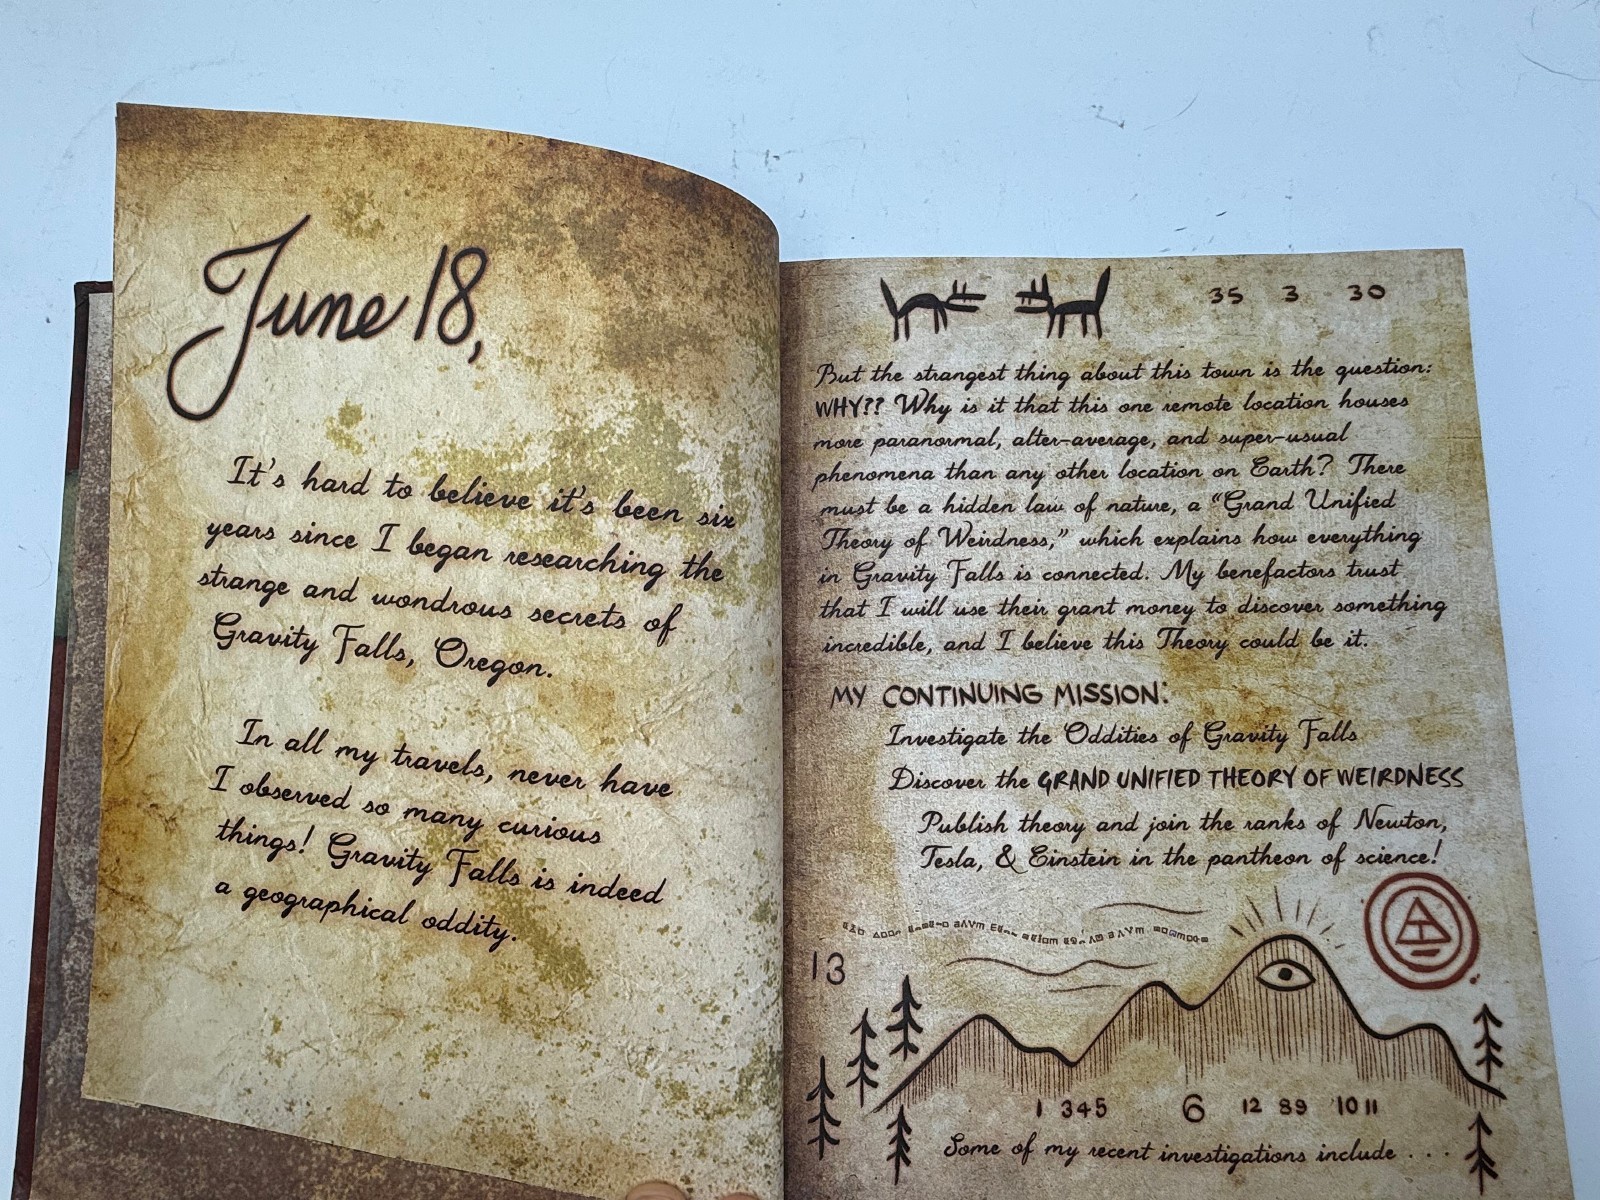 June 18,
It's hard to believe it's been six
years since I began researching the
strange and wondrous secrets of
Gravity Falls, Oregon.
In all my travels, never have
I observed so many curious
things! Gravity Falls is indeed
a geographical oddity.
35 3 30
But the strangest thing about this town is the question:
WHY?? Why is it that this one remote location houses
more paranormal, alter-average, and super-usual
phenomena than any other location on Earth? There
must be a hidden law of nature, a "Grand Unified
Theory of Weirdness," which explains how everything
in Gravity Falls is connected. My benefactors trust
that I will use their grant money to discover something
incredible, and I believe this Theory could be it.
MY CONTINUING MISSION:
Investigate the Oddities of Gravity Falls
Discover the GRAND UNIFIED THEORY OF WEIRDNESS
Publish theory and join the ranks of Newton,
Tesla, & Einstein in the pantheon of science!
13
1 345 6 12 89 10 11
Some of my recent investigations include . . .